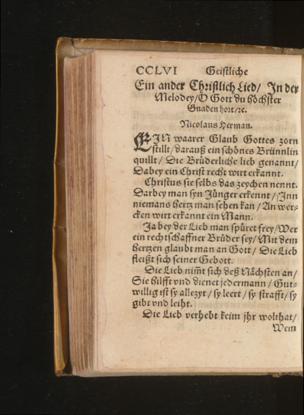 CCLVI Geistliche
Ein ander Christlich Lied/ In der
Melodey/ O Gott du höchster
Gnaden hort/ ꝛc.
Nicolaus Herman.
EIn waarer Glaub Gottes zorn
stillt/ darauß ein schönes Brünnlin
quillt/ Die Brüderliche lieb genannt/
Dabey ein Christ recht wirt erkannt.
Christus sie selbs das zeychen nennt.
Darbey man syn Jünger erkennt/ Inn
niemans hertz man sehen kan/ An wer-
cken wirt erkannt ein Mann.
Ja bey der Lieb man spüret frey/ Wer
ein rechtschaffner Brüder sey/ Mit dem
hertzen glaubt man an Gott/ Die Lieb
fleißt sich seiner Gebott.
Die Lieb nim̃t sich deß Nächsten an/
Sie hilfft vnd dienet jedermann/ Gut-
willig ist sy allezyt/ sy leert/ sy strafft/ sy
gibt vnd leiht.
Die Lieb verhebt keim jhr wolthat/
Wem